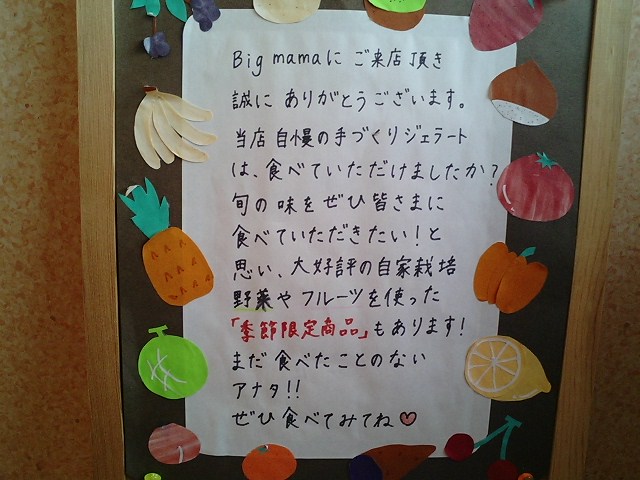 Big mamaに ご来店頂き
誠に ありがとうございます。
当店 自慢の手づくりジェラート
は、食べていただけましたか?
旬の味をぜひ皆さまに
食べていただきたい!と
思い、大好評の自家栽培
野菜や フルーツを使った
「季節限定商品」もあります!
まだ食べたことのない
アナタ!!
ぜひ食べてみてね♡